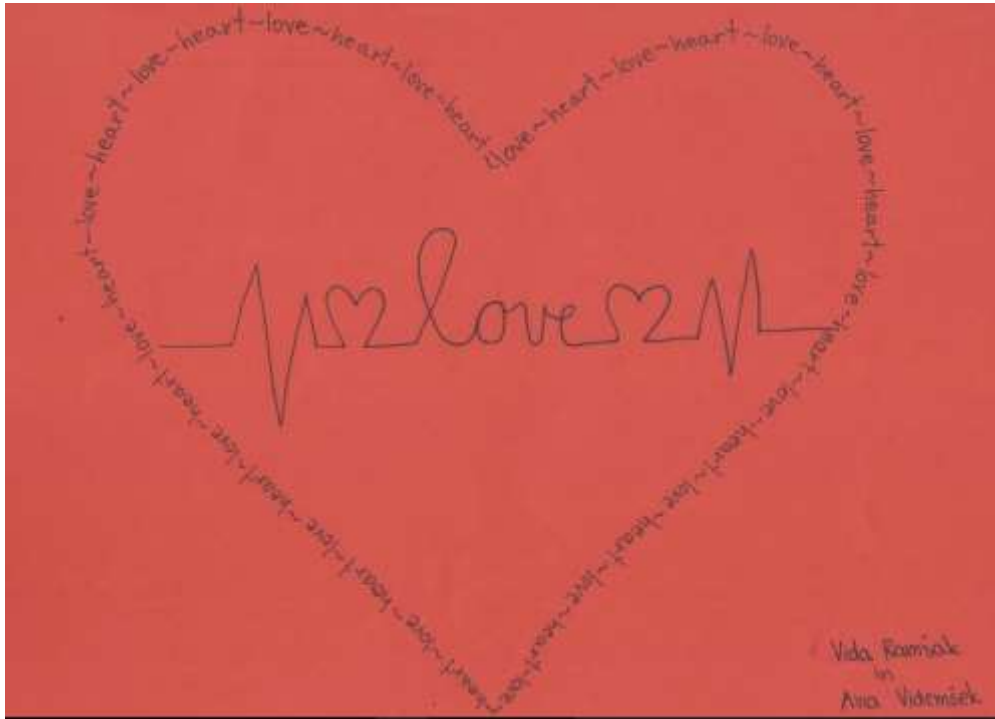 love ~ heart ~ love ~ heart ~ love ~ heart ~ love ~ heart ~ love ~ heart ~ love ~ heart ~ love ~ heart ~ love ~ heart ~ love ~ heart ~ love ~ heart ~ love ~ heart ~ love ~ heart ~ love ~ heart ~ love ~ heart ~ love ~ heart ~ love ~ heart ~ love ~ heart
love
Vida Ramšak
in
Ana Videmšek